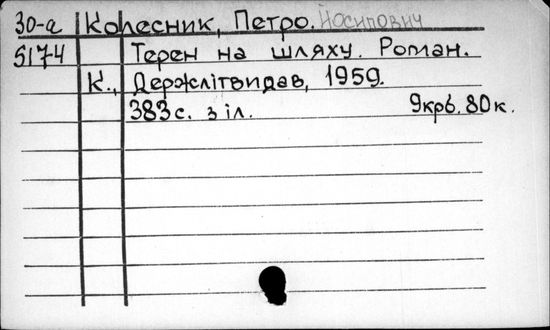 30-а Колесник, Петро. Йосипович
5174 Терен на шляху. Роман.
К., Держлітвидав, 1959.
383 с. з іл. 9крб. 80 к.